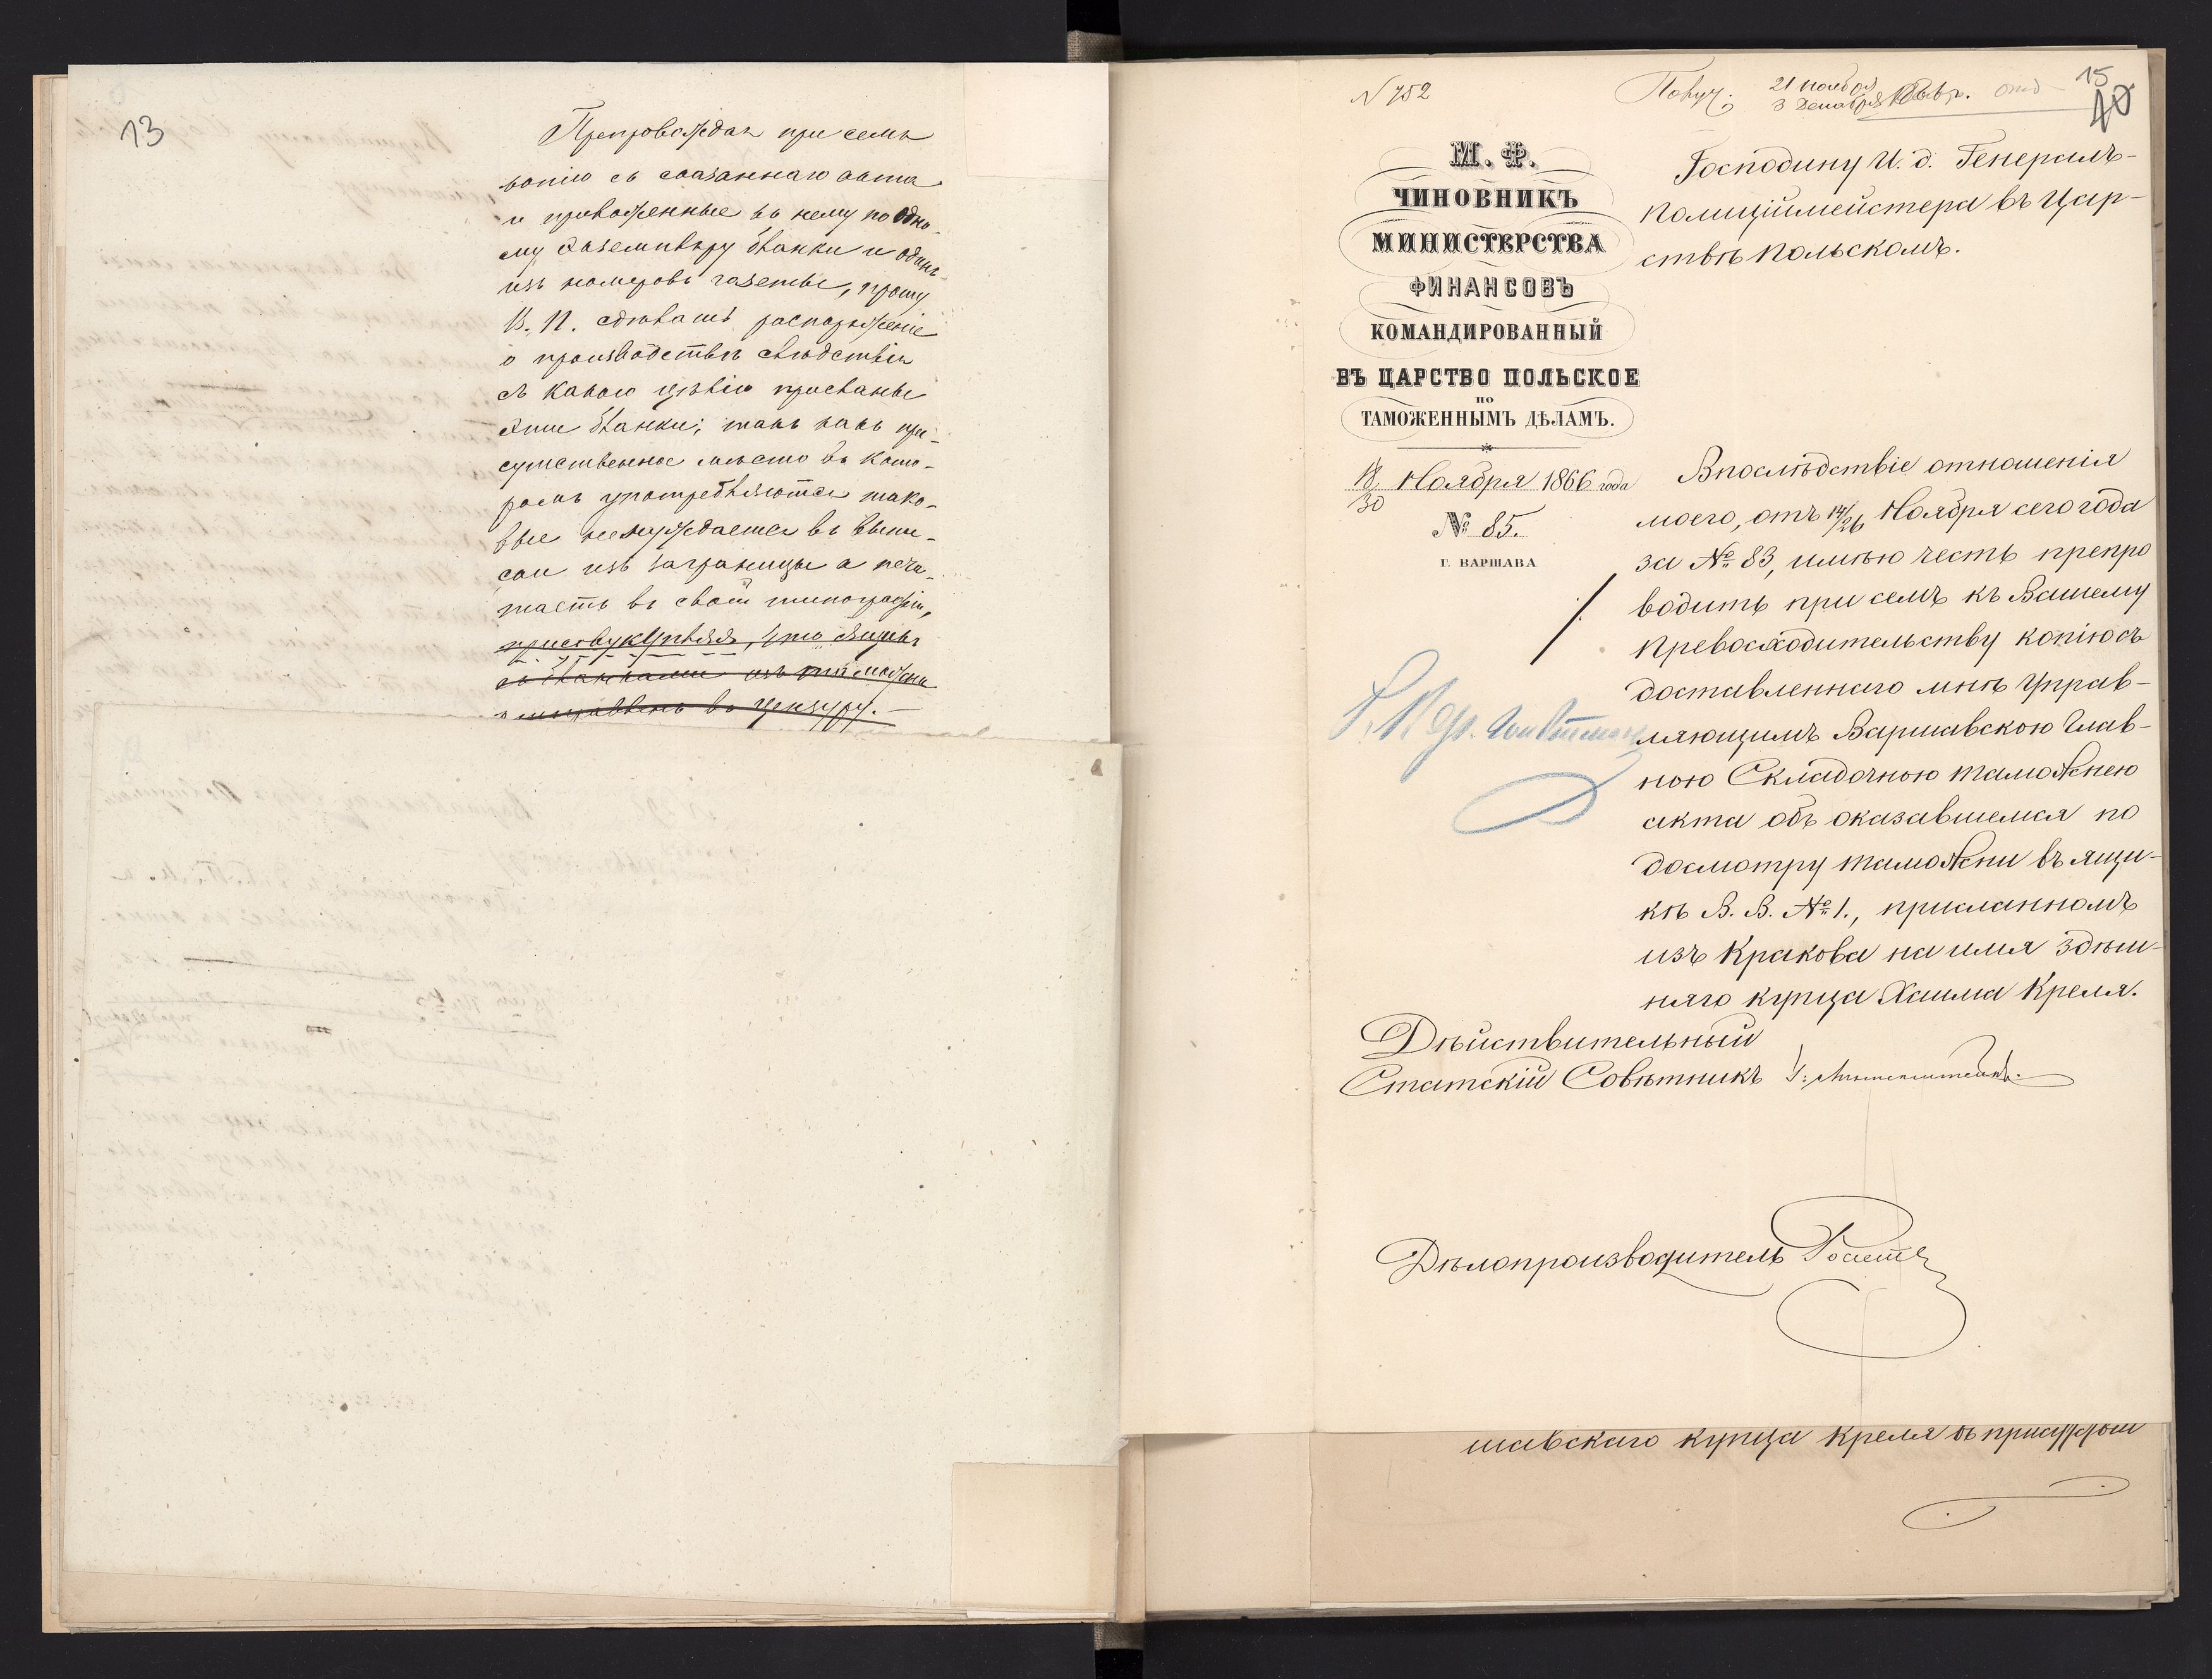 13
Препровождая при семъ
копію съ сказаннаго акта
и приложенные къ нему по одно-
му экземпляру бланки и одинъ
изъ номеровъ газеты, прошу
В. П. сдѣлать распоряженіе
о производствѣ слѣдствія
съ какою цѣлію присланы
эти бланки; такъ какъ при-
сутственное мѣсто въ кото-
ромъ употребляются тако-
вые не нуждается въ выпи-
ски изъ заграницы а печа-
таетъ въ своей типографіи,
присовукупляя, что ящикъ
съ бланками изъ таможни
отправленъ въ цензуру.
N 752
Получ. 21 ноября
3 Декабря
15
40
М. Ф.
ЧИНОВНИКЪ
МИНИСТЕРСТВА
ФИНАНСОВЪ
КОМАНДИРОВАННЫЙ
ВЪ ЦАРСТВО ПОЛЬСКОЕ
ПО
ТАМОЖЕННЫМЪ ДѢЛАМЪ.
18/30 Ноября 1866 года
№ 85.
Г. ВАРШАВА
Господину И. д. Генералъ-
Полиціймейстера въ Цар-
ствѣ Польскомъ.
Впослѣдствіе отношенія
моего, отъ 14/26 Ноября сего года
за № 83, имѣю честь препро
водить при семъ къ Вашему
Превосходительству копію съ
доставленнаго мнѣ Управ-
ляющимъ Варшавскою Глав-
ною Складочною таможнею
акта объ оказавшемся по
досмотру таможни въ ящи-
кѣ В. В. № 1., присланномъ
изъ Кракова на имя здѣш-
няго купца Хаима Креля.
Дѣйствительный
Статскій Совѣтникъ
Дѣлопроизводитель
шавскаго купца Креля въ